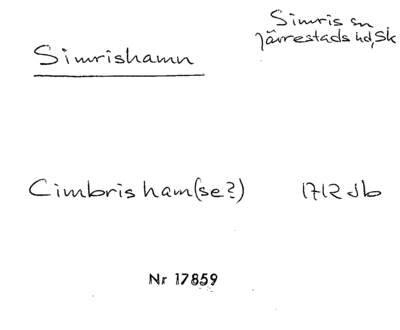 Simrishamn
Simris sn
Järrestads hd, Sk
Cimbris ham(se?) 1712 db
Nr 17859